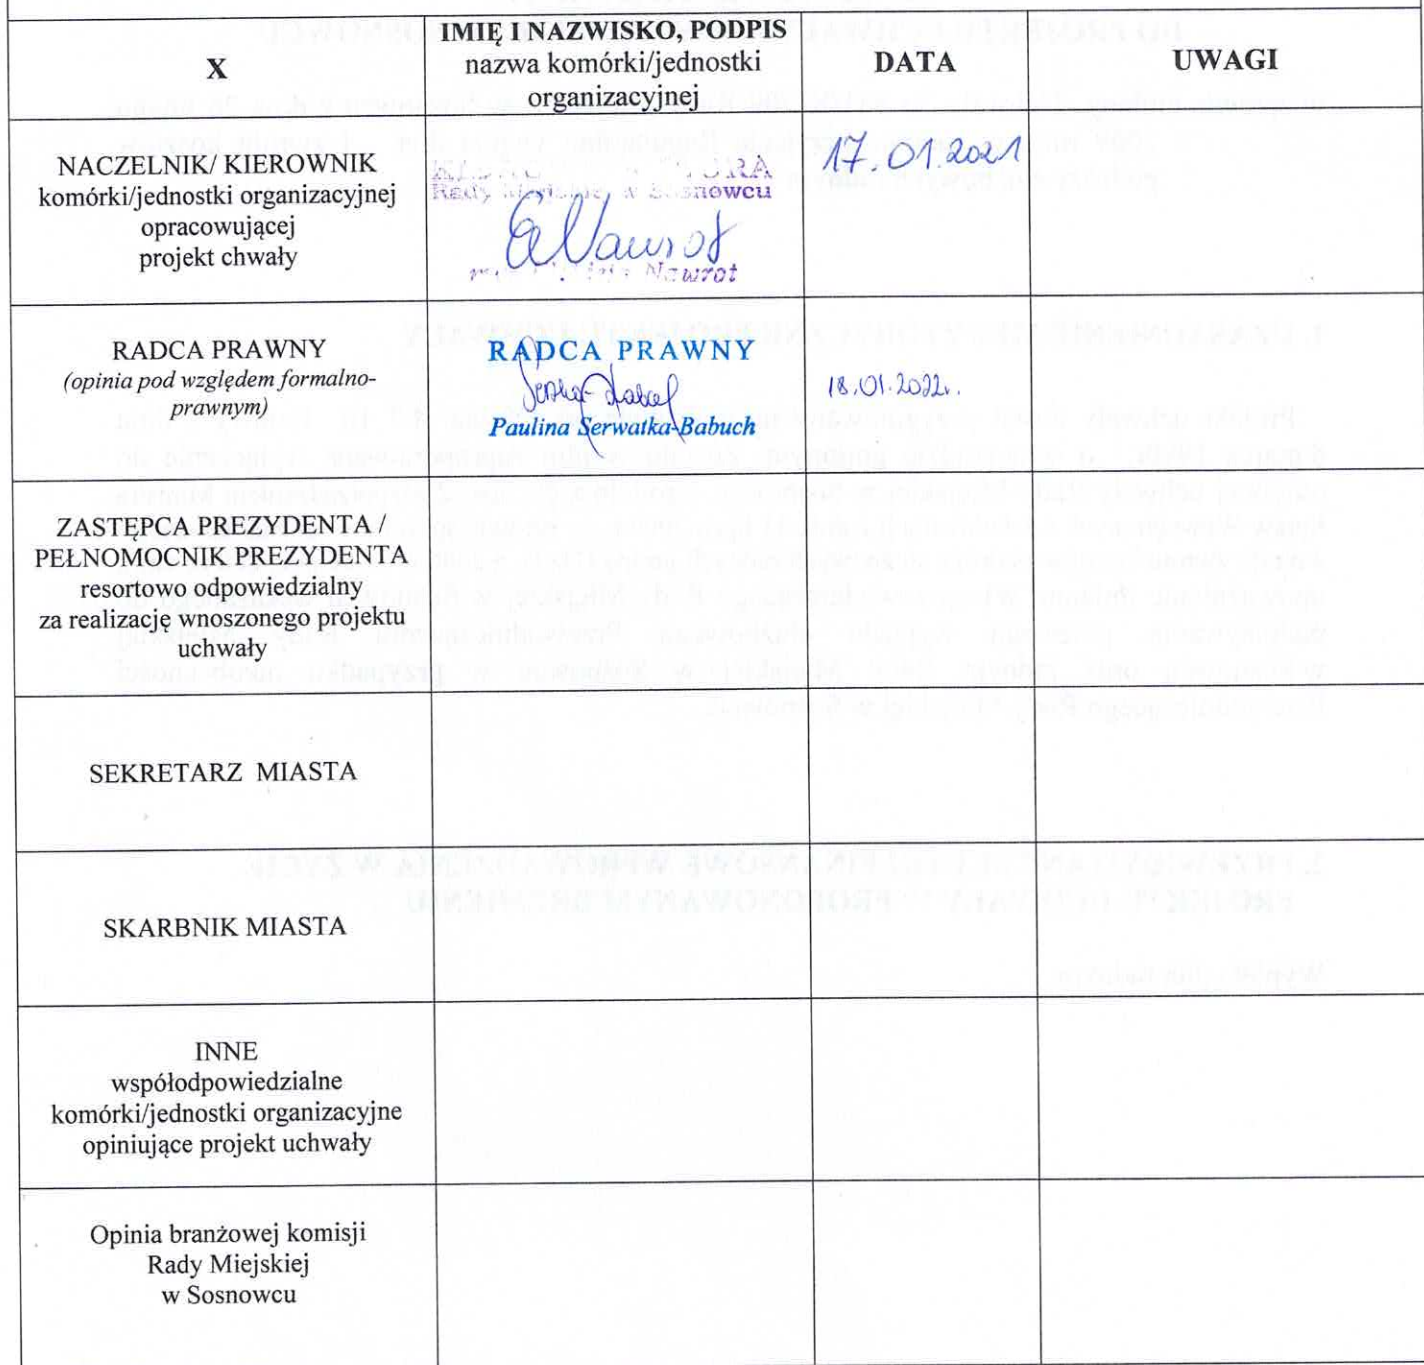 X
IMIĘ I NAZWISKO, PODPIS
nazwa komórki/jednostki
organizacyjnej
DATA
UWAGI
NACZELNIK/ KIEROWNIK
komórki/jednostki organizacyjnej
opracowującej
projekt chwały
Rady w Sosnowcu
Nawrot
Nawrot
17.01.2021
RADCA PRAWNY
(opinia pod względem formalno-
prawnym)
RADCA PRAWNY
Paulina Serwatka-Babuch
18.01.2022r.
ZASTĘPCA PREZYDENTA /
PEŁNOMOCNIK PREZYDENTA
resortowo odpowiedzialny
za realizację wnoszonego projektu
uchwały
SEKRETARZ MIASTA
SKARBNIK MIASTA
INNE
współodpowiedzialne
komórki/jednostki organizacyjne
opiniujące projekt uchwały
Opinia branżowej komisji
Rady Miejskiej
w Sosnowcu